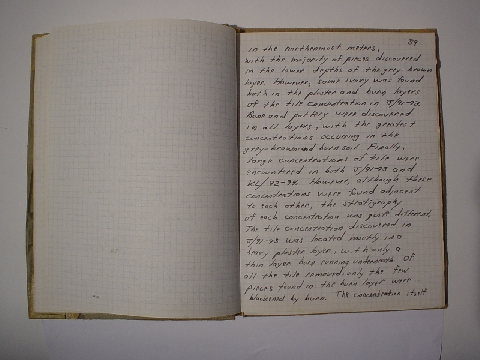 89
in the northernmost meters,
with the majority of pieces discovered
in the lower depths of the grey brown
layer. However, some ivory was found
both in the plaster and burn layers
of the tile concentration in J/91-93.
Bone and pottery were discovered
in all layers, with the greatest
concentrations occuring in the
grey brown and burn soil. Finally,
large concentrations of tile were
encountered in both J/91-93 and
KL/92-94. However, although these
concentrations were found adjacent
to each other, the stratigraphy
of each concentration was quite different.
The tile concentration discovered in
J/91-93 was located mostly in a
heavy plaster layer, with only a
thin layer burn running underneath. Of
all the tile removed, only the few
pieces found in the burn layer were
blackened by burn. The concentration itself